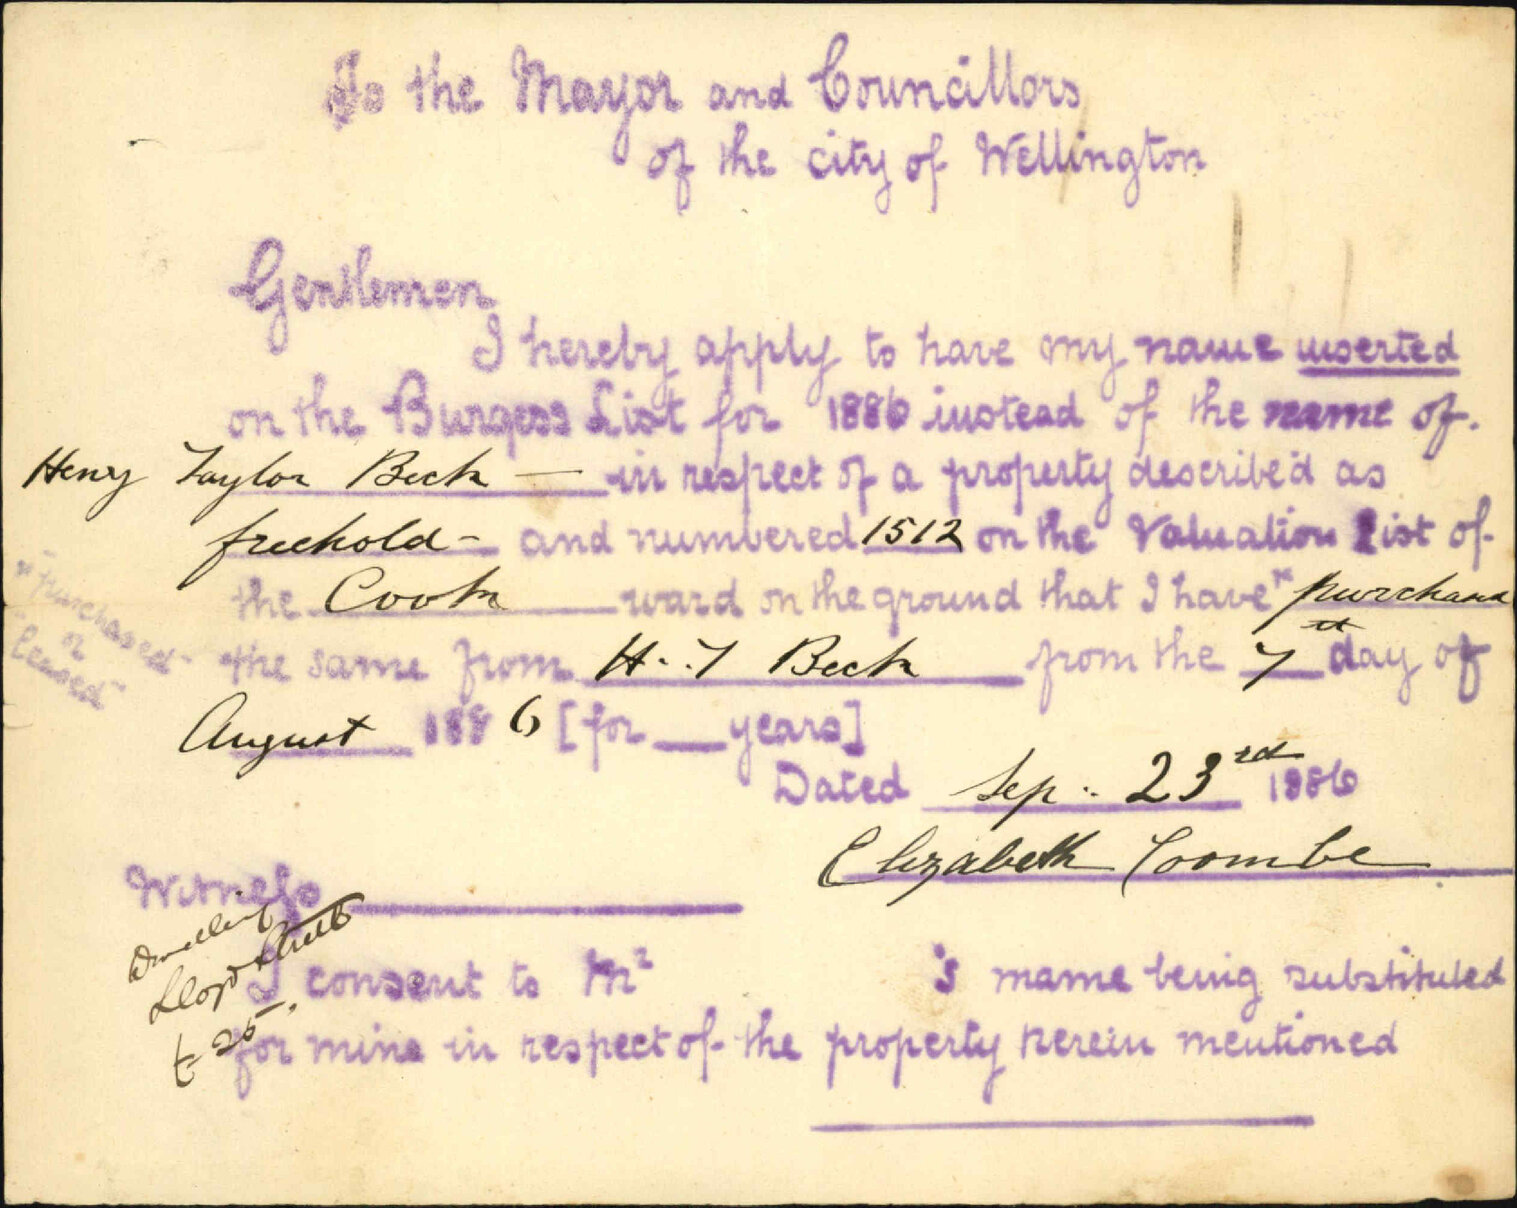 To the Mayor and Councillors
of the city of Wellington
Gentlemen
I hereby apply to have my name inserted
on the Burgess List for 1886 instead of the name of.
Henry Taylor Beck — in respect of a property described as
freehold - and numbered 1512 on the Valuation List of
the Cook ward on the ground that I have * purchased
"purchased"
or
"leased"
the same from H. T Beck from the 7th day of
August 1886 [for __ years]
Dated Sep.. 23rd 1886
Elizabeth Coombe
Witness
Dwelling
Lloyd Street
£25.
I consent to Mr 's name being substituted
for mine in respect of the property herein mentioned